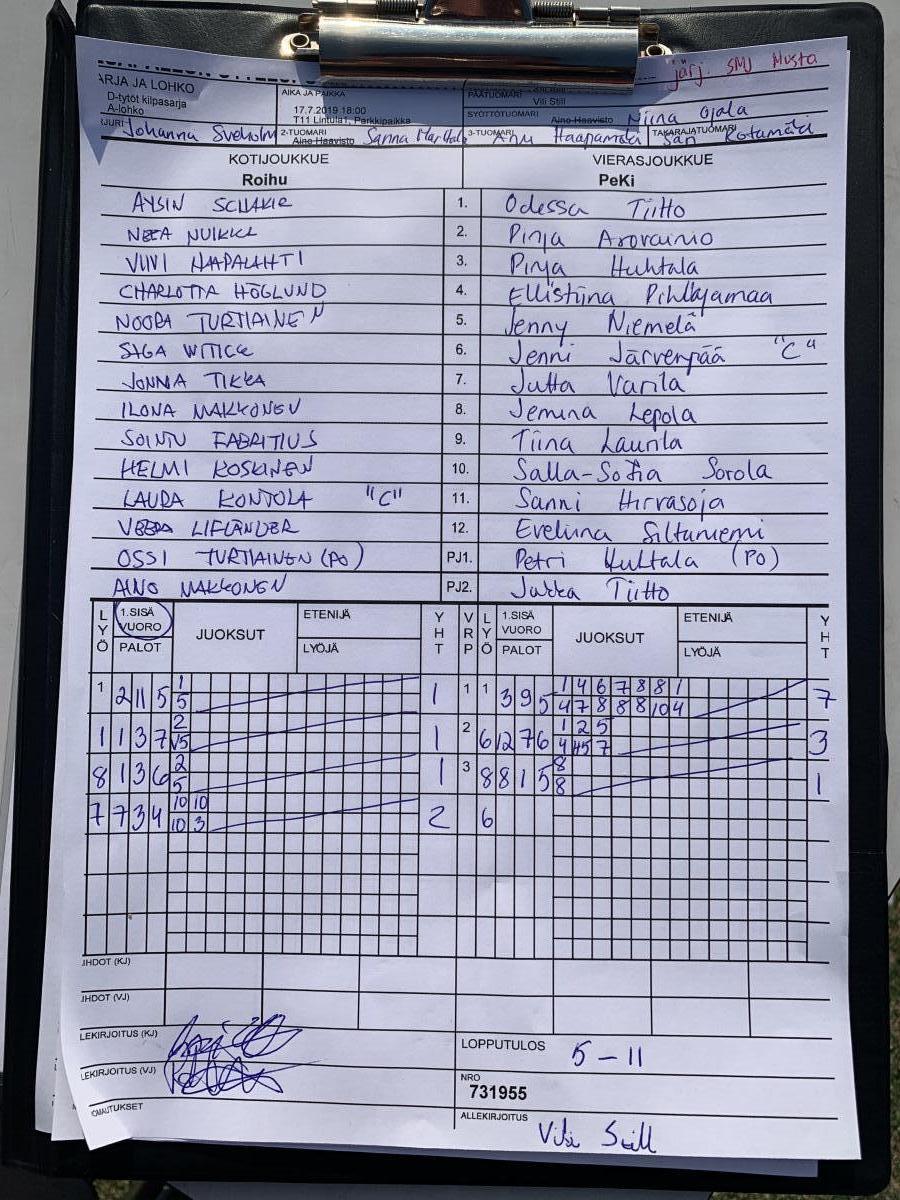 järj. SMJ Musta
ARJA JA LOHKO
D-tytöt kilpasarja
A-lohko
AIKA JA PAIKKA
17.7.2019 18:00
T11 Lintula1, Parkkipaikka
PÄÄTUOMARI
Vili Still
SYÖTTÖTUOMARI Aino Haavisto Niina Ojala
Johanna Sveholm
2-TUOMARI
Aino Haavisto Sanna
3-TUOMARI Anu Haapamäki
TAKARAJATUOMARI
Kotamäki
KOTIJOUKKUE VIERASJOUKKUE
Roihu PeKi
AYSIN 1. Odessa Tiitto
NEEA NUIKKA 2. Pinja Arovainio
VIIVI HAAPALAHTI 3. Pinja Huhtala
CHARLOTTA HÖGLUND 4. Ellistiina Pihlajamaa
NOORA TURTIAINEN 5. Jenny Niemelä
SAGA 6. Jenni Järvenpää "C"
JONNA TIKKA 7. Jutta Varila
ILONA MAKKONEN 8. Jemina Lepola
SOINTU FABRITIUS 9. Tiina Laurila
HELMI KOSKINEN 10. Salla-Sofia Sorola
LAURA KONTOLA "C" 11. Sanni Hirvasoja
VEERA LIFLÄNDER 12. Eveliina Siltaniemi
OSSI TURTIAINEN (PO) PJ1. Petri Huhtala (PO)
AINO MAKKONEN PJ2. Jukka Tiitto
LYÖ 1.SISÄ VUORO PALOT JUOKSUT ETENIJÄ LYÖJÄ YHT VRP LYÖ 1.SISÄ VUORO PALOT JUOKSUT ETENIJÄ LYÖJÄ YHT
1 2 11 5 1 1 1 1 3 9 5 1 4 6 7 8 8 1 7
5 4 7 8 8 8 10 4
1 1 3 7 2 1 2 6 12 7 6 1 2 5 3
V5 4 45 7
8 1 3 6 2 1 3 8 8 1 5 8 1
5 8
7 7 3 4 10 10 2 6
10 3
IHDOT (KJ)
IHDOT (VJ)
LEKIRJOITUS (KJ)
LEKIRJOITUS (VJ)
OMAUTUKSET
LOPPUTULOS 5 - 11
NRO
731955
ALLEKIRJOITUS
Vili Still